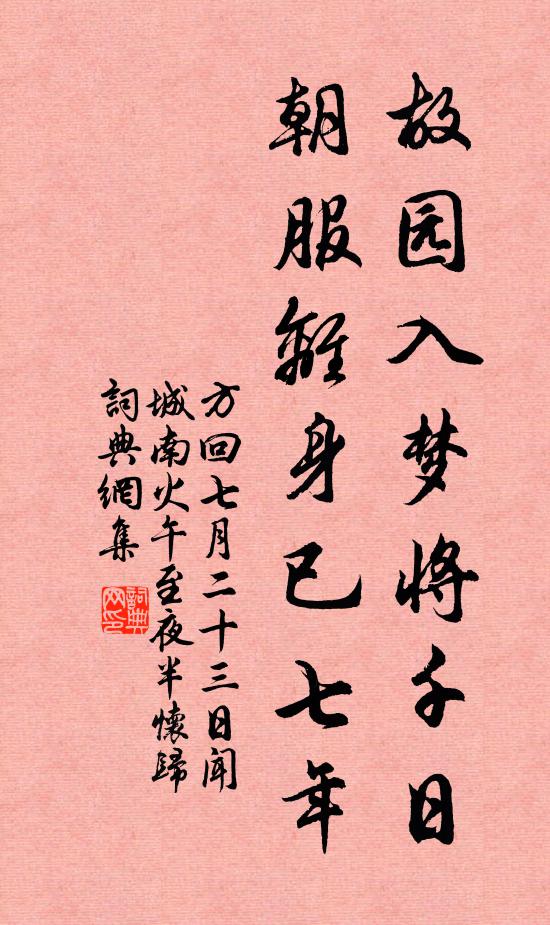 故园入梦将千日
朝服離身已七年
方回七月二十三日闻
城南火午至夜半懷歸
詞典網集
詞典网印